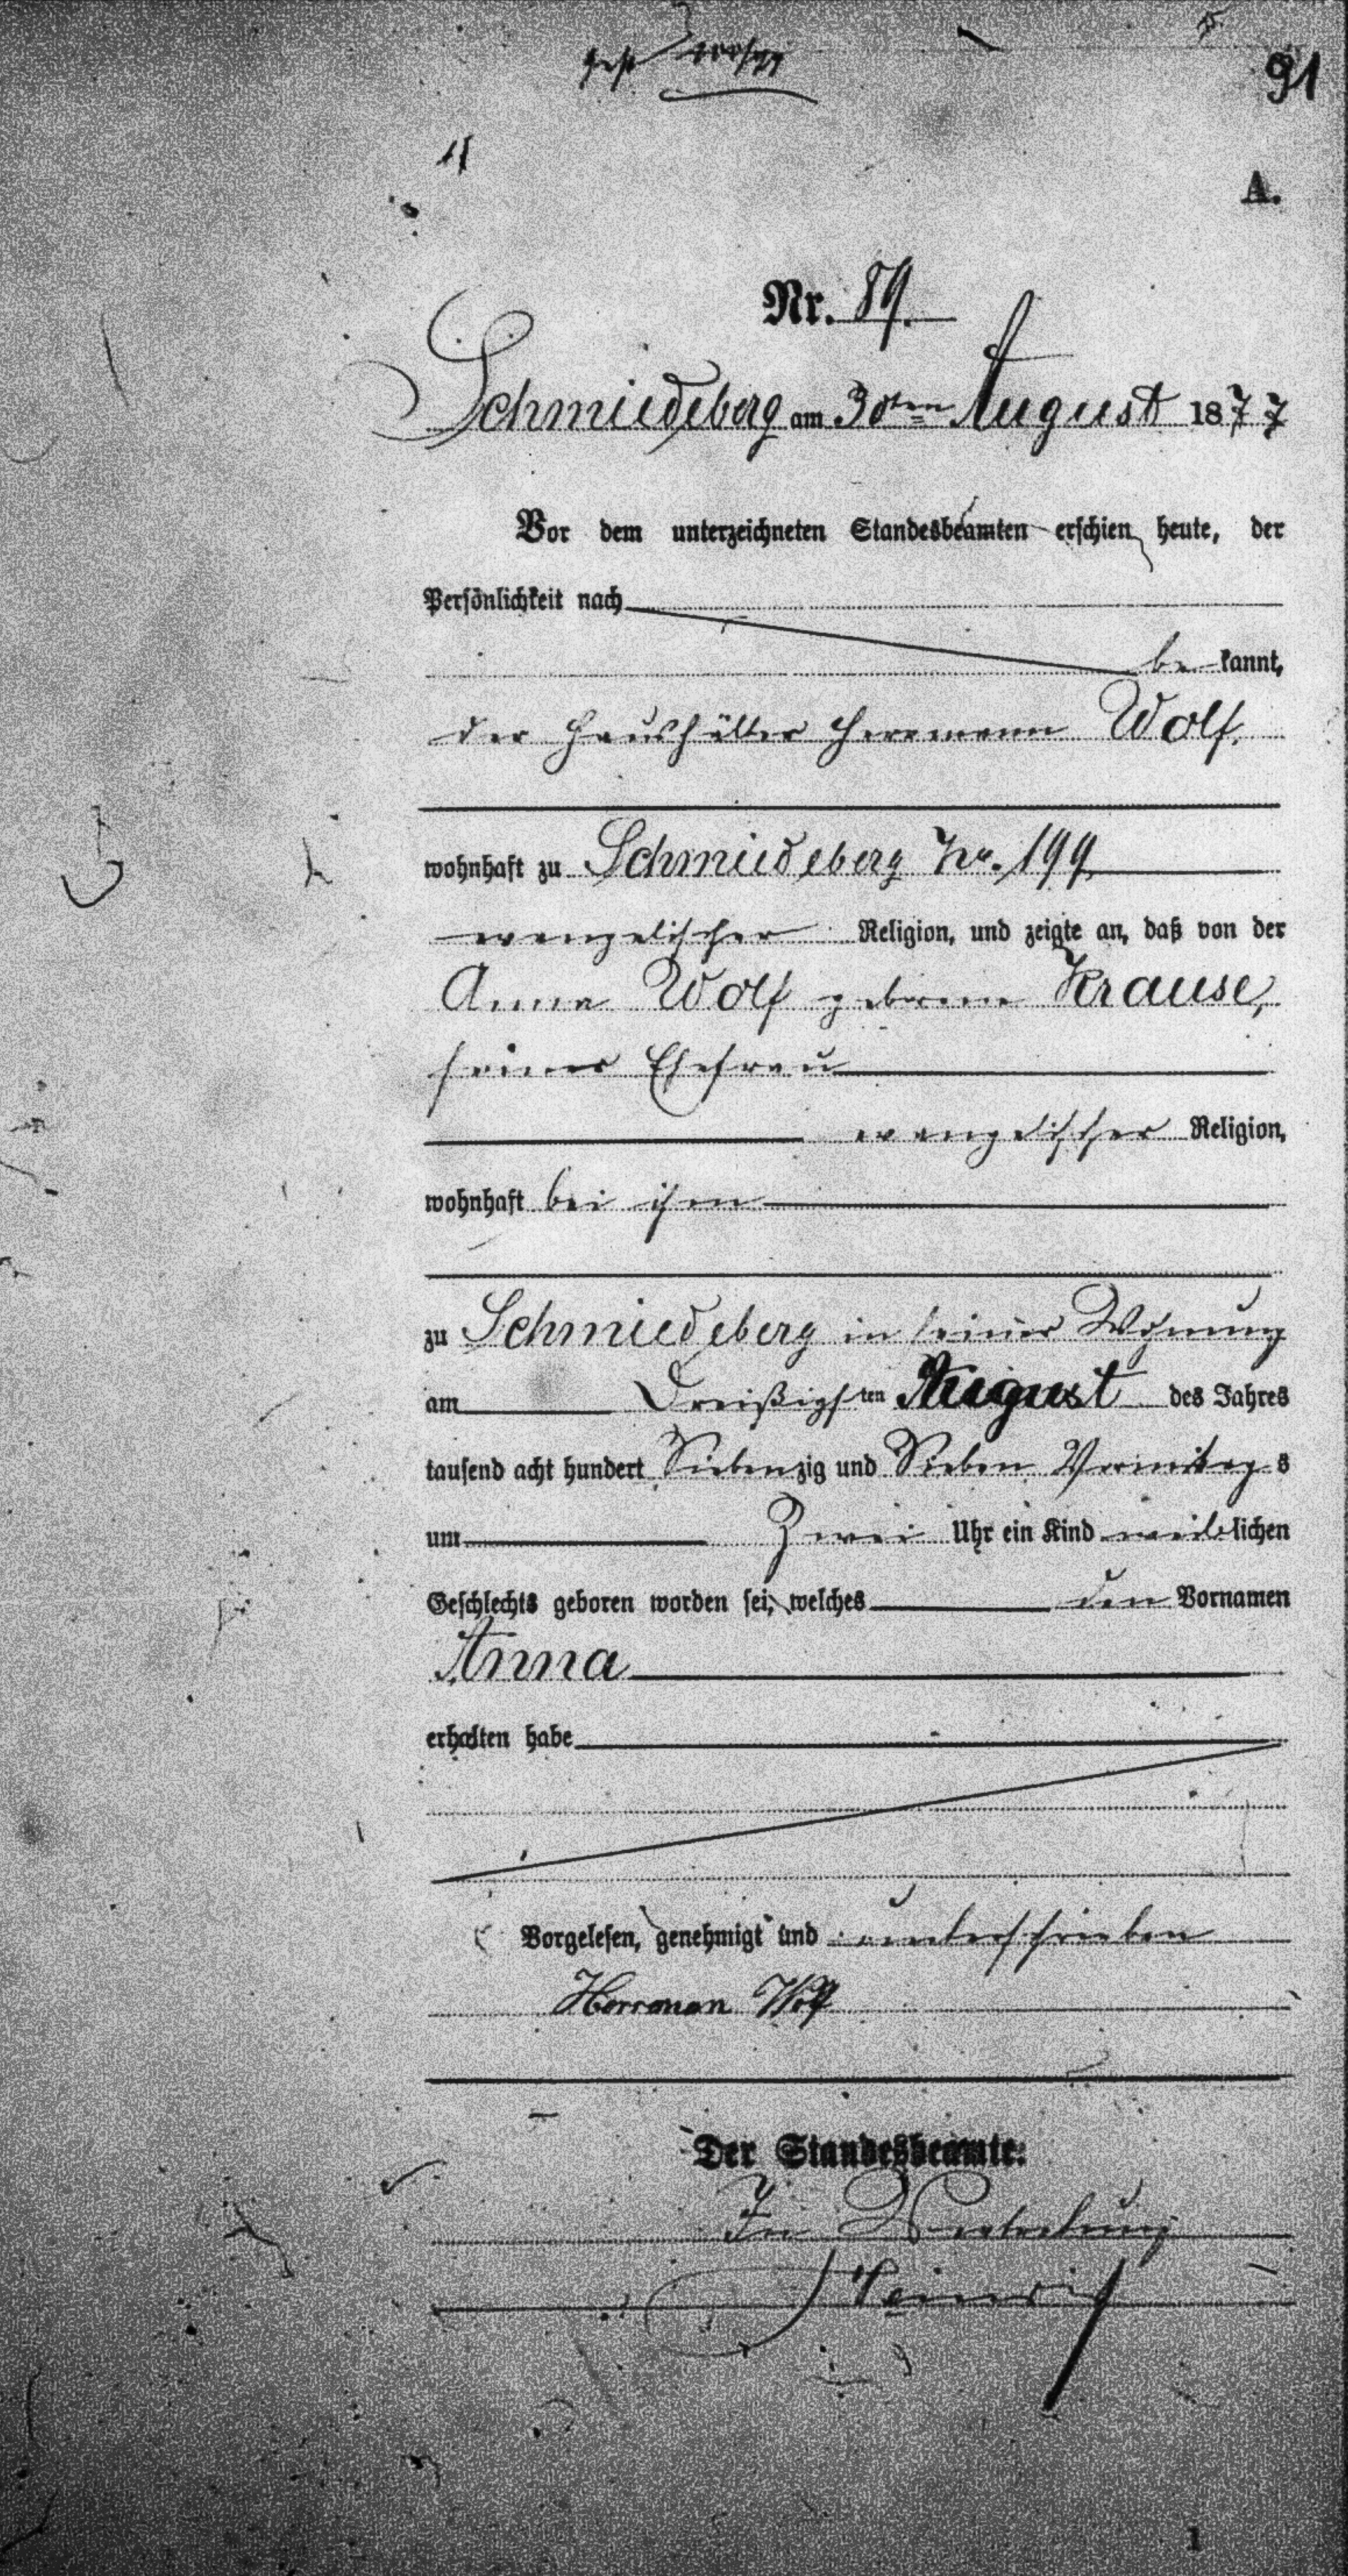 91
A.
Nr. 89.
Schmiedeberg am 30ten August 1877
Vor dem unterzeichneten Standesbeamten erschien heute, der
Persönlichkeit nach
be kannt,
der Haushälter Herrmann Wolf.
wohnhaft zu Schmiedeberg No. 199
evangelischer Religion, und zeigte an, daß von der
Anna Wolf geborene Krause,
seiner Ehefrau
evangelischer Religion,
wohnhaft bei ihm
zu Schmiedeberg in seiner Wohnung
am Dreißigsten August des Jahres
tausend acht hundert Siebenzig und Sieben Vormittags
um Zwei Uhr ein Kind weiblichen
Geschlechts geboren worden sei, welches den Vornamen
Anna
erhalten habe
Vorgelesen, genehmigt und unterschrieben
Herrman Wolf
Der Standesbeamte.
In Vertretung
Heinrich
1